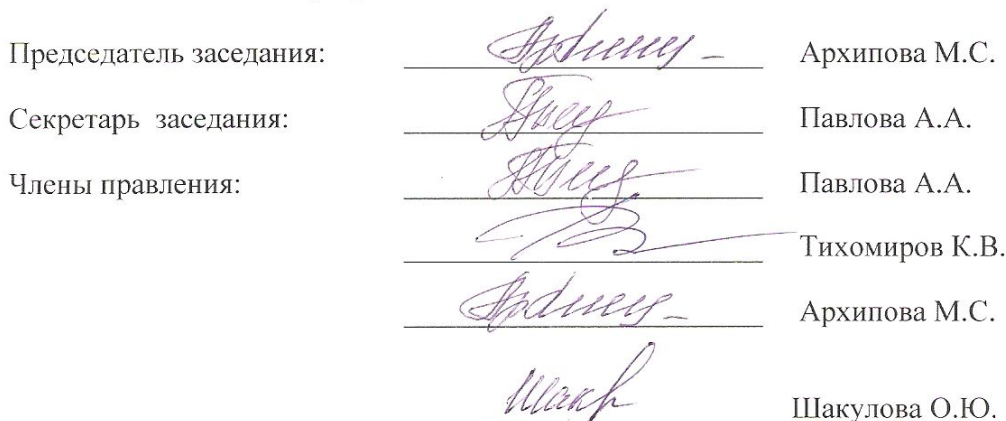 Председатель заседания: Архипова М.С.
Секретарь заседания: Павлова А.А.
Члены правления: Павлова А.А.
Тихомиров К.В.
Архипова М.С.
Шакулова О.Ю.